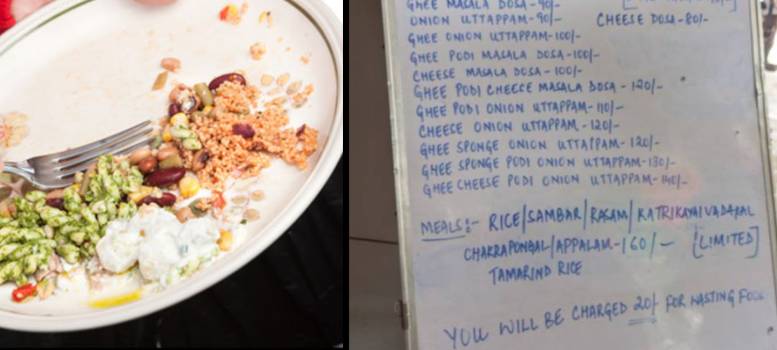 GHEE MASALA DOSA-90/-
ONION UTTAPPAM-90/- CHEESE DOSA-80/-
GHEE ONION UTTAPPAM-100/-
GHEE PODI MASALA DOSA-100/-
CHEESE MASALA DOSA-100/-
GHEE PODI CHEESE MASALA DOSA-120/-
GHEE PODI ONION UTTAPPAM-110/-
CHEESE ONION UTTAPPAM-120/-
GHEE SPONGE ONION UTTAPPAM-120/-
GHEE SPONGE PODI ONION UTTAPPAM-130/-
GHEE CHEESE PODI ONION UTTAPPAM-140/-
MEALS:- RICE/SAMBAR/RASAM/KATRIKAYAI VADAKAL
CHAKRAPONGAL/APPALAM-160/- [LIMITED]
TAMARIND RICE
YOU WILL BE CHARGED 20/- FOR WASTING FOOD